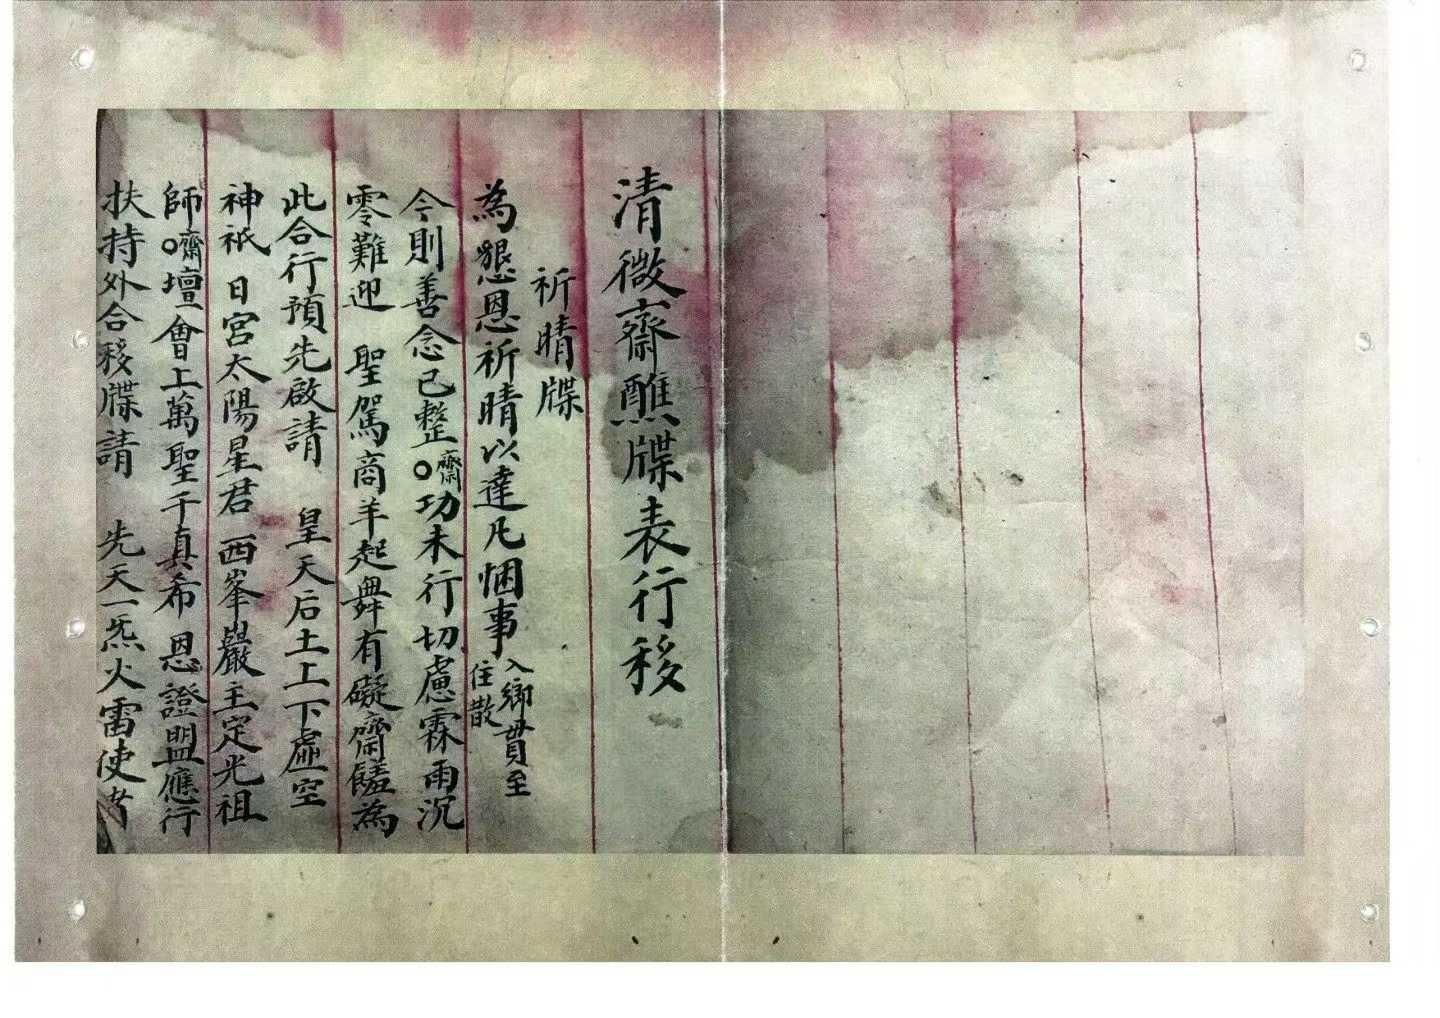 清微齋醮牒表行移
祈晴牒
為懇恩祈晴以達凡悃事入鄉貫至住散
今則善念已整○齋功未行切慮霖雨沉
零難迎 聖駕商羊起舞有礙齋饈為
此合行預先啟請 皇天后土上下虛空
神祇 日宮太陽星君 西峯巖主定光祖
師○齋壇會上萬聖千真希 恩證盟應行
扶持外合移牒請 先天一炁火雷使者